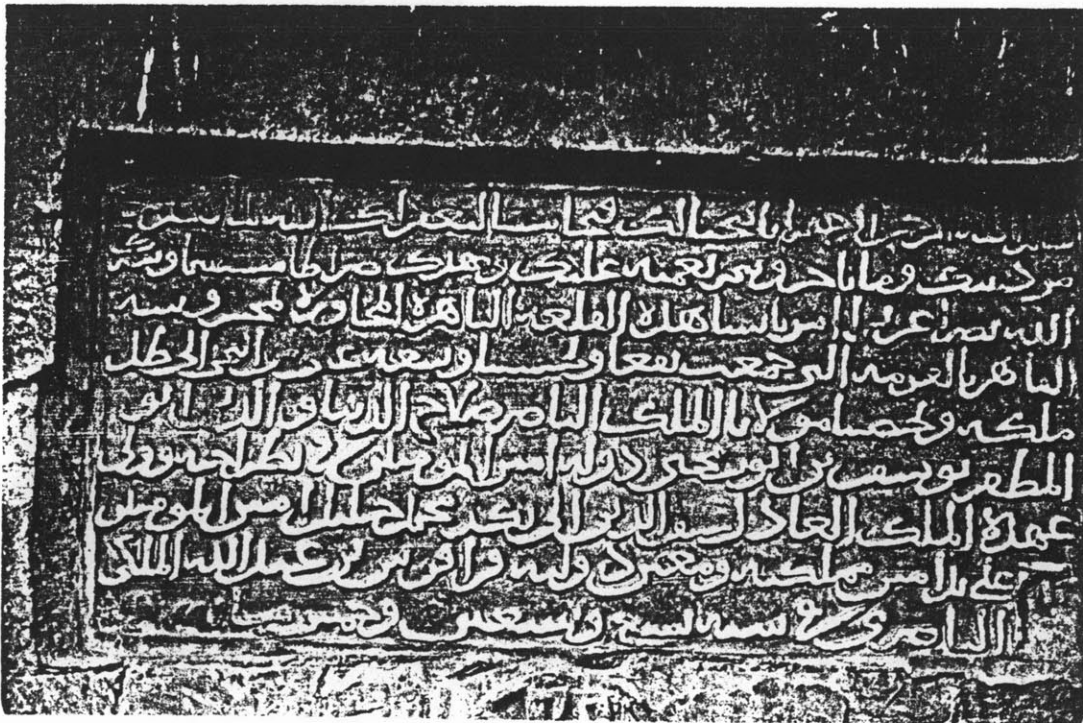 بسم الله الرحمن الرحيم انا فتحنا لك فتحا مبينا ليغفر لك الله ما تقدم
من ذنبك وما تاخر ويتم نعمته عليك ويهديك صراطا مستقيما وينصرك
الله نصرا عزيزا امر بانشا هذه القلعة الباهرة المجاورة لمحروسة
القاهرة بالعرمة التي جمعت نفعا وتحسينا وسعة على من التجى الى ظل
ملكه وتحصينا مولانا الملك الناصر صلاح الدنيا والدين ابو
المظفر يوسف بن ايوب محيي دولة امير المؤمنين في نظر اخيه وولي
عهده الملك العادل سيف الدين ابي بكر محمد خليل امير المؤمنين
على يد امير مملكته ومعين دولته قراقوش بن عبد الله الملكي
الناصري في سنة تسع وسبعين وخمس مائة